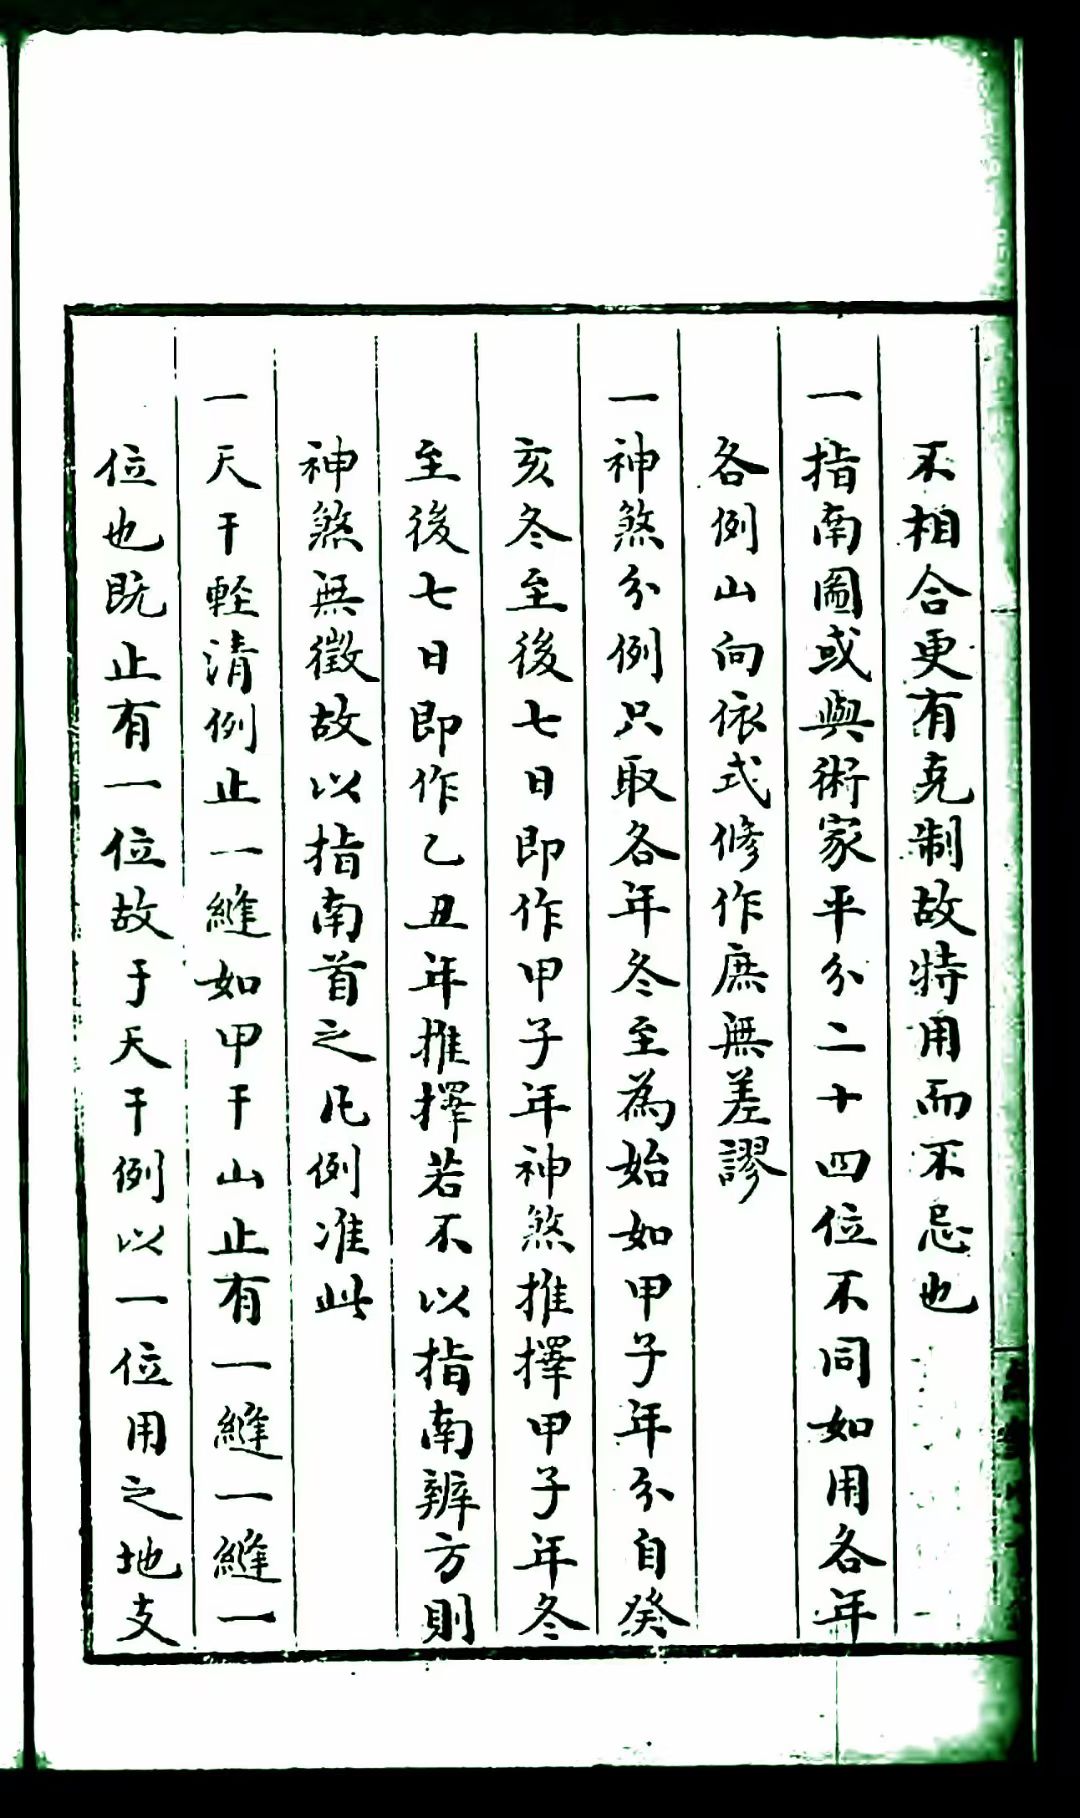 不相合更有克制故特用而不忌也
一指南圖或與術家平分二十四位不同如用各年
各例山向依式修作庶無差謬
一神煞分例只取各年冬至為始如甲子年分自癸
亥冬至後七日即作甲子年神煞推擇甲子年冬
至後七日即作乙丑年推擇若不以指南辨方則
神煞無徵故以指南首之凡例准此
一天干輕清例止一縫如甲干山止有一縫一縫一
位也既止有一位故于天干例以一位用之地支